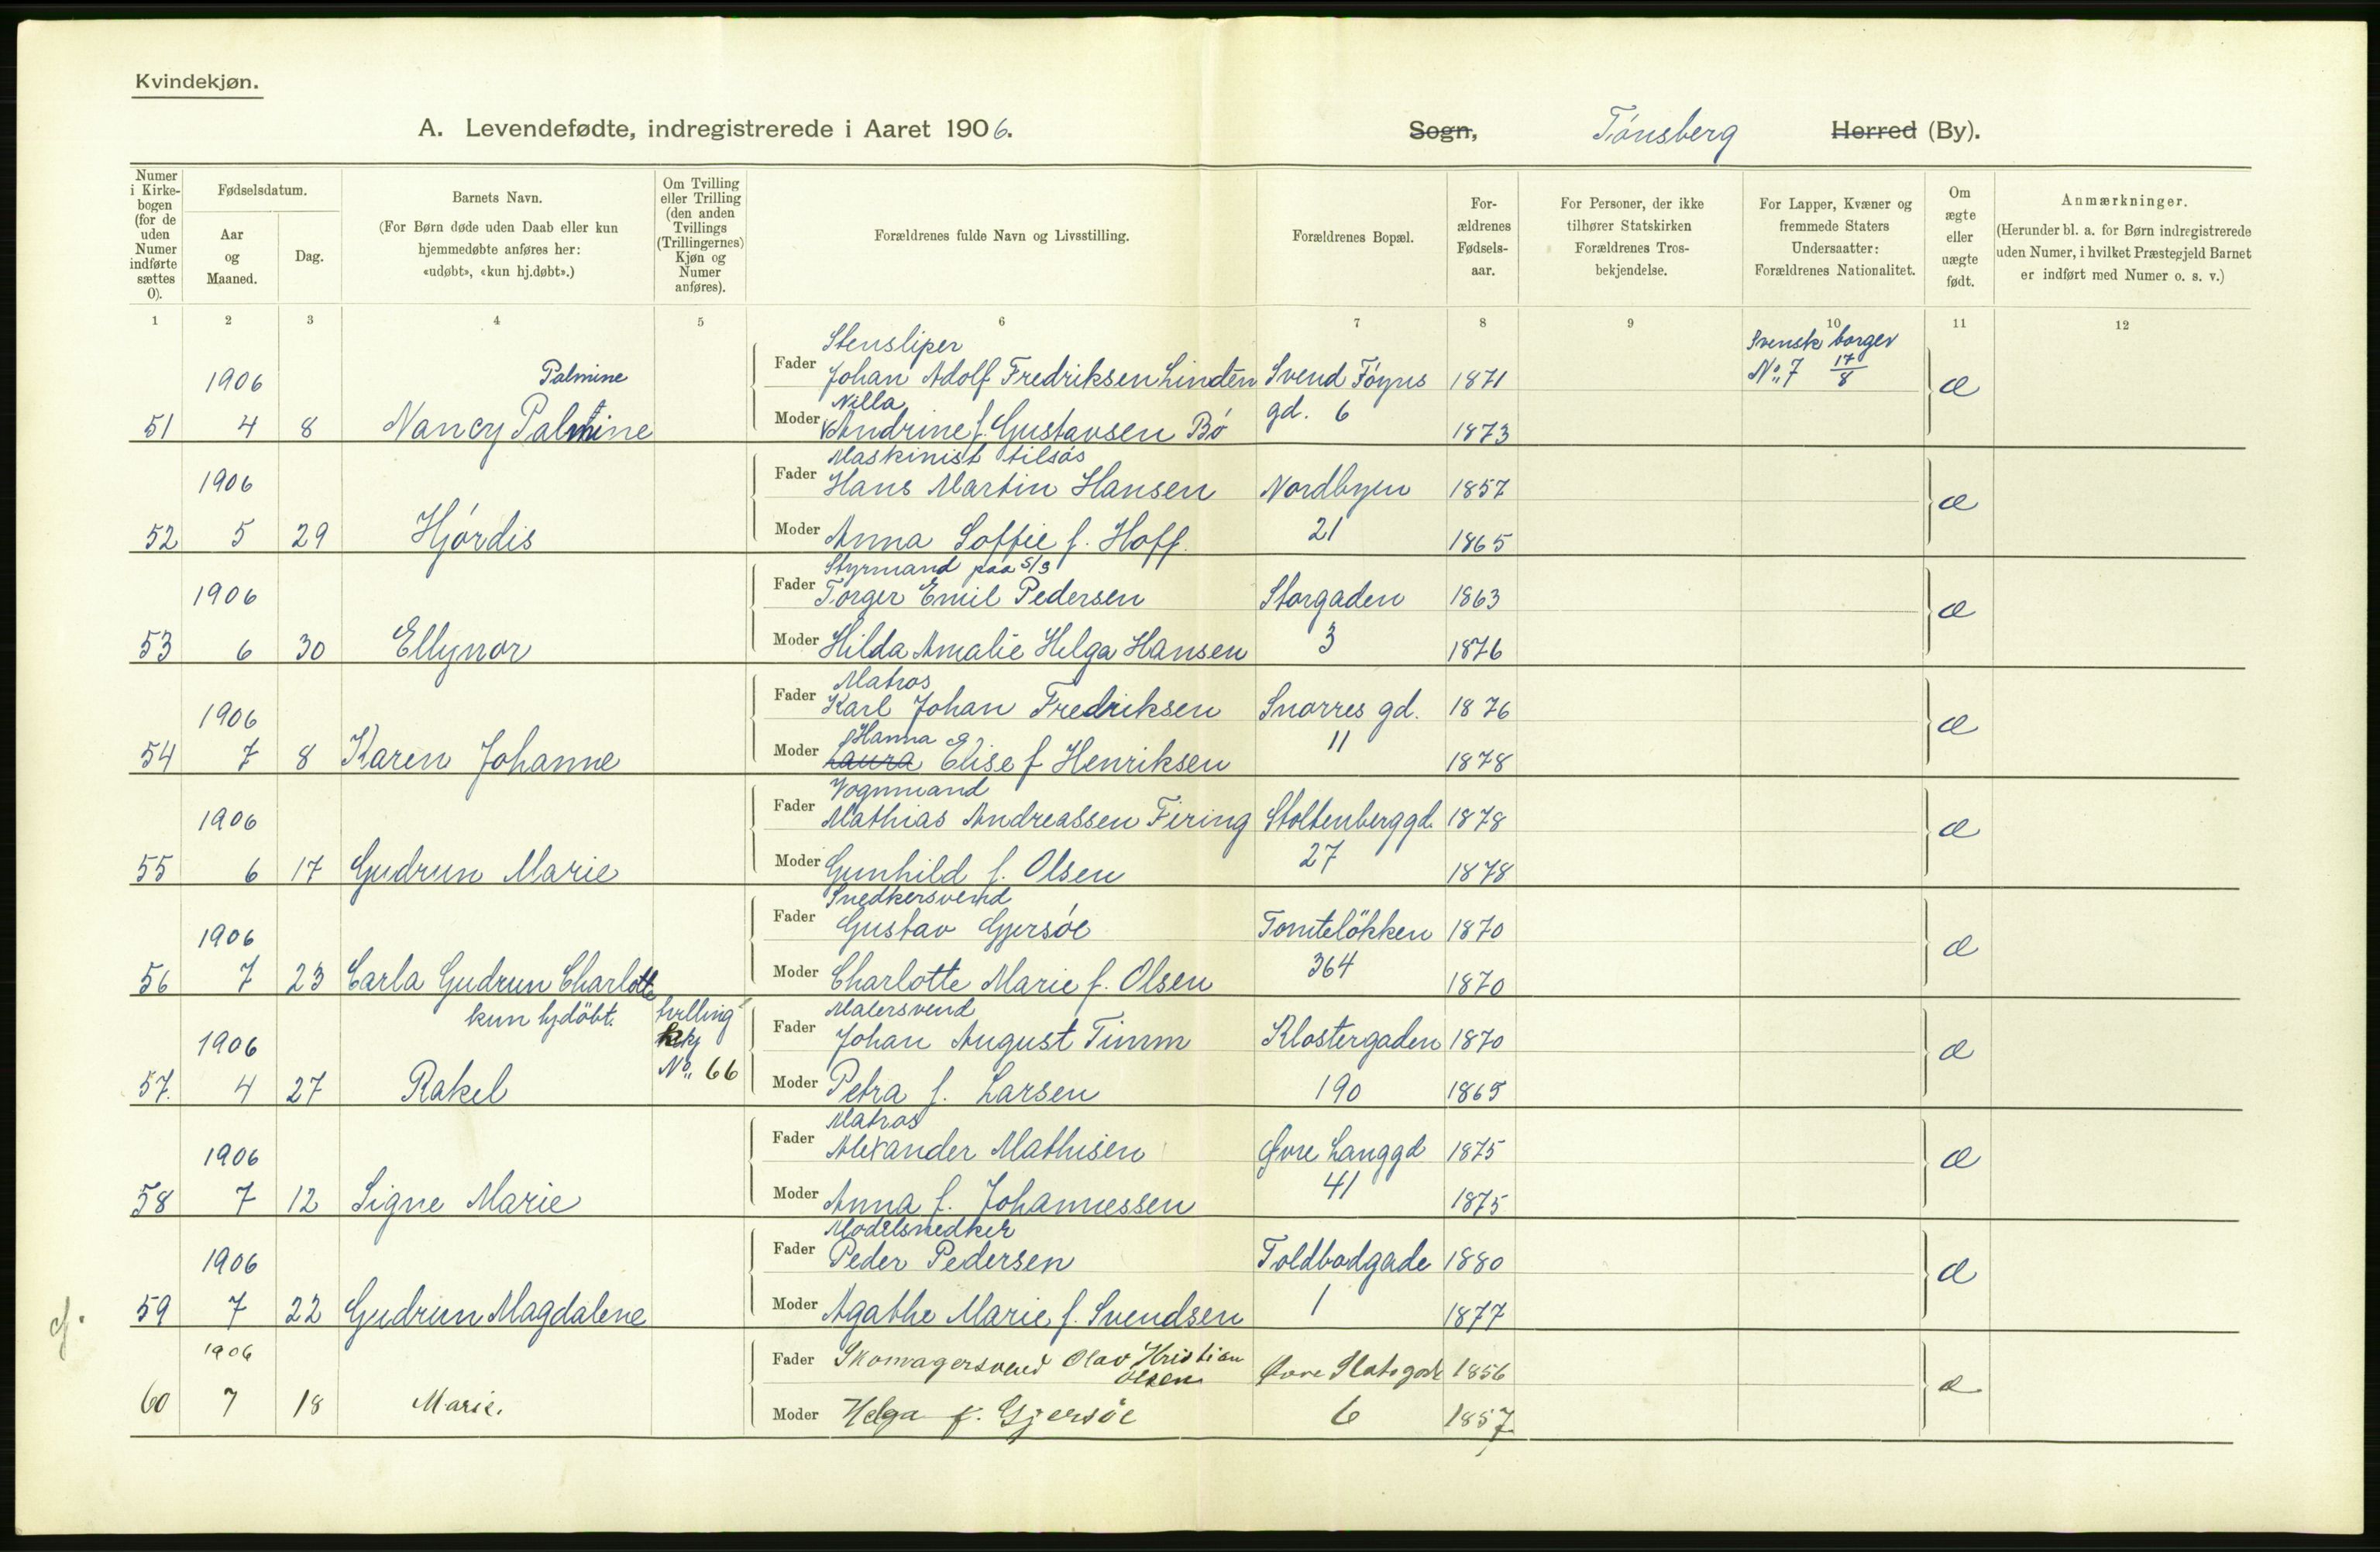 Kvindekjøn.
A. Levendefødte, indregistrerede i Aaret 1906.
Sogn, Tónsberg Herred (By).
Numer i Kirkebogen (for de uden Numer indførte sættes 0).
Fødselsdatum.
Aar og Maaned.
Dag.
Barnets Navn.
(For Børn døde uden Daab eller kun hjemmedøbte anføres her: «udøbt», «kun hj.døbt».)
Om Tvilling eller Trilling (den anden Tvillings (Trillingernes) Kjøn og Numer anføres).
Forældrenes fulde Navn og Livsstilling.
Forældrenes Bopæl.
Forældrenes Fødselsaar.
For Personer, der ikke tilhører Statskirken Forældrenes Trosbekjendelse.
For Lapper, Kvæner og fremmede Staters Undersaatter: Forældrenes Nationalitet.
Om ægte eller uægte født.
Anmærkninger.
(Herunder bl. a. for Børn indregistrerede uden Numer, i hvilket Præstegjeld Barnet er indført med Numer o. s. v.)
1 2 3 4 5 6 7 8 9 10 11 12
Stensliper Svensk borger
1906 Palmine Fader Johan Adolf Fredriksen Lindén Svend Føyns 1871 No. 7 17/8 æ
Nilla gd. 6
51 4 8 Nancy Palmine Moder Andrine f. Gustavsen Bó 1873
Maskinist tilsøs
1906 Fader Hans Martin Hansen Nordbyen 1857 æ
52 5 29 Hjórdis Moder Anna Soffie f. Hoff. 21 1865
Styrmand paa S/S
1906 Fader Torger Emil Pedersen Storgaden 1863 æ
53 6 30 Ellynor Moder Hilda Amalie Helga Hansen 3 1876
Matros
1906 Fader Karl Johan Fredriksen Snorres gd. 1876 æ
Hanna 11
54 7 8 Karen Johanne Moder Laura Elise f Henriksen 1878
Vognmand
1906 Fader Mathias Andreassen Firing Stoltenberggd. 1878 æ
55 6 17 Gudrun Marie Moder Gunhild f. Olsen 27 1878
Snedkersvend
1906 Fader Gustav Gjersóe Tomteløkken 1870 æ
56 7 23 Carla Gudrun Charlotte Moder Charlotte Marie f. Olsen 364 1870
kun hjdöbt. tvilling Malersvend
1906 Fader Johan August Timm Klostergaden 1870 æ
No. 66
57. 4 27 Rakel Moder Petra f. Larsen 190 1865
Matros
1906 Fader Alexander Mathisen Øvre Langgd 1875 æ
58 7 12 Signe Marie Moder Anna f. Johannessen 41 1875
Modelsnedker
1906 Fader Peder Pedersen Toldbodgade 1880 æ
59 7 22 Gudrun Magdalene Moder Agathe Marie f. Svendsen 1 1877
1906 Fader Skomagersvend Olav Kristian Olsen Øvre 1856 æ
60 7 18 Marie. Moder Helga f. Gjersöe 6 1857